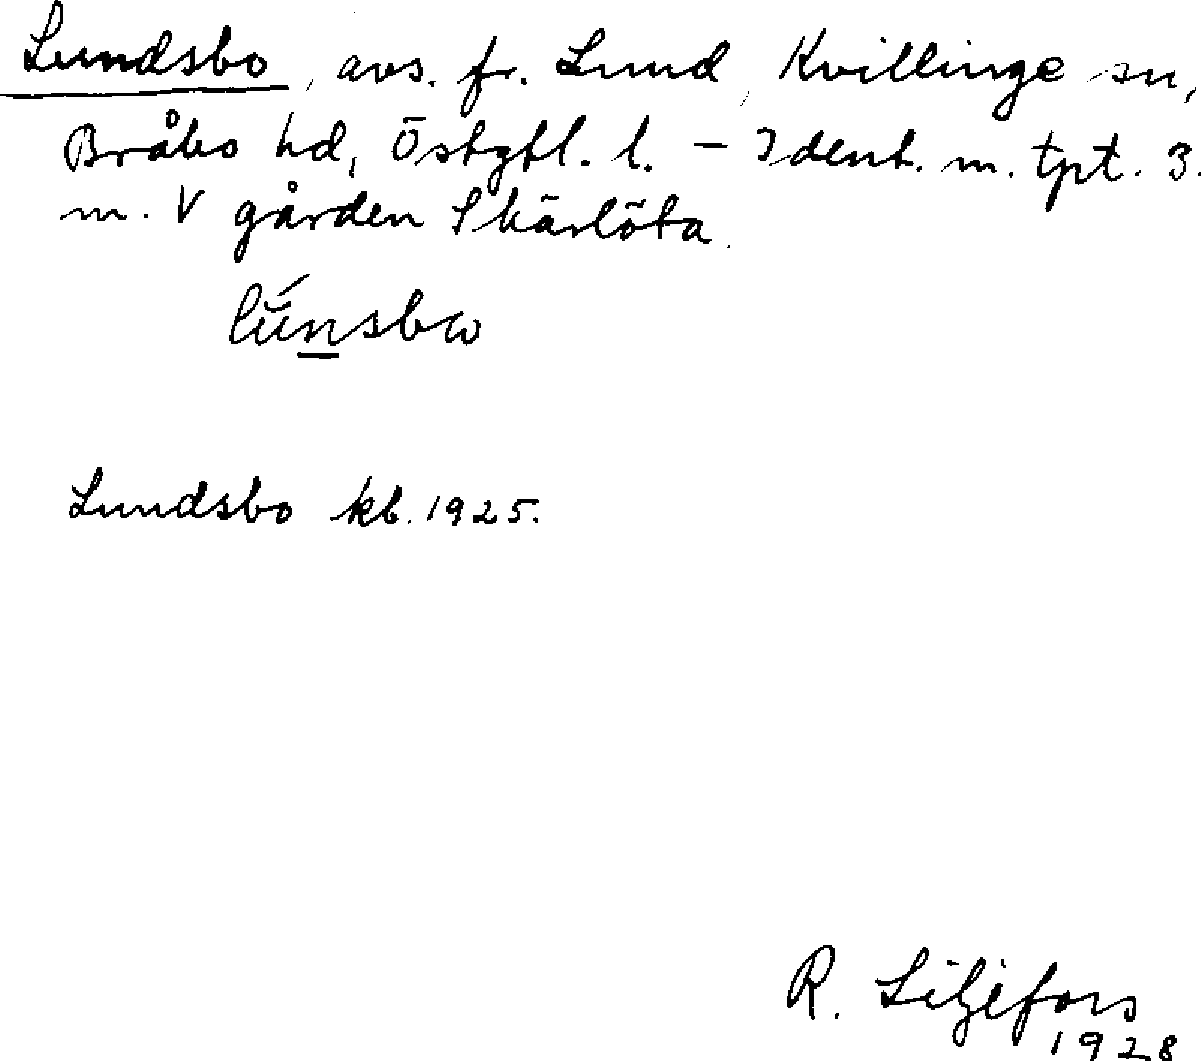 Lundsbo, avs. fr. Lund, Kvillinge sn,
Bråbo hd, Östgtl. l. – Ident. m. tpt. 3.
m. V gården Skärlöta.
lúnsbω
Lundsbo kb. 1925.
R. Liljefors
1928